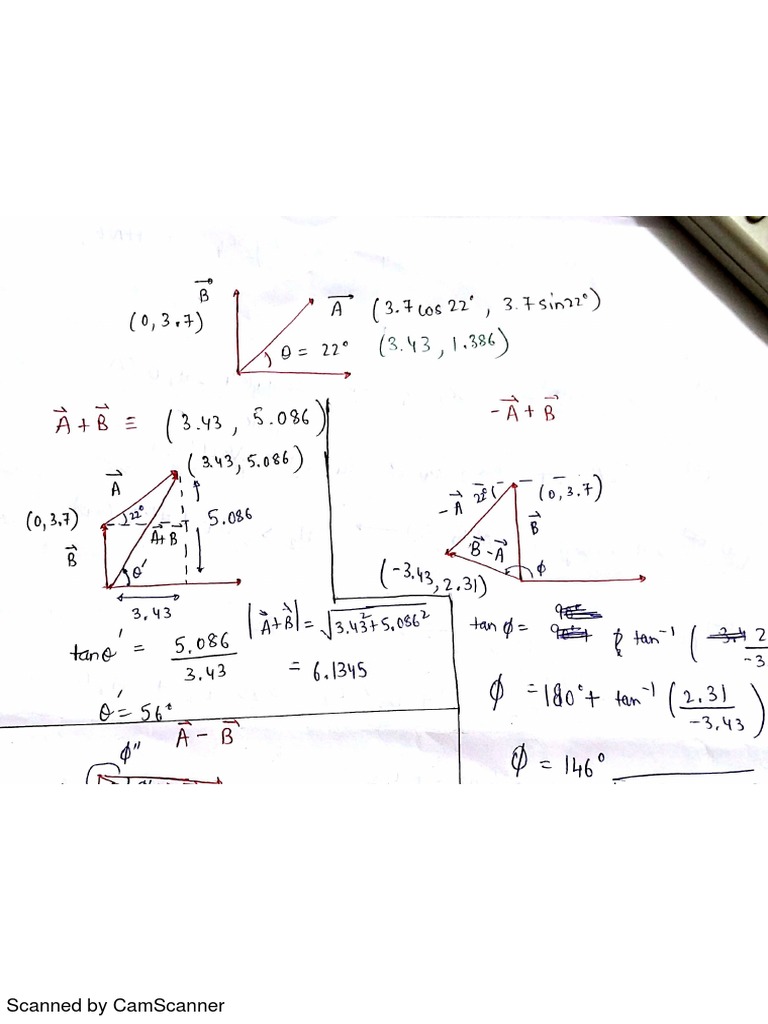 B⃗
(0, 3.7)
A⃗ (3.7 cos 22°, 3.7 sin 22°)
θ = 22° (3.43, 1.386)
A⃗ + B⃗ ≡ (3.43, 5.086)
(3.43, 5.086)
A⃗
(0, 3.7) 22° 5.086
A⃗ + B⃗
B⃗
θ'
3.43
|A⃗ + B⃗| = √(3.43² + 5.086²)
= 6.1345
tan θ' = 5.086 / 3.43
θ' = 56°
-A⃗ + B⃗
-A⃗ 22° (0, 3.7)
B⃗
B⃗ - A⃗ φ
(-3.43, 2.31)
tan φ =
tan⁻¹ (2 / -3
φ = 180° + tan⁻¹ (2.31 / -3.43)
φ = 146°
A⃗ - B⃗
φ''
Scanned by CamScanner